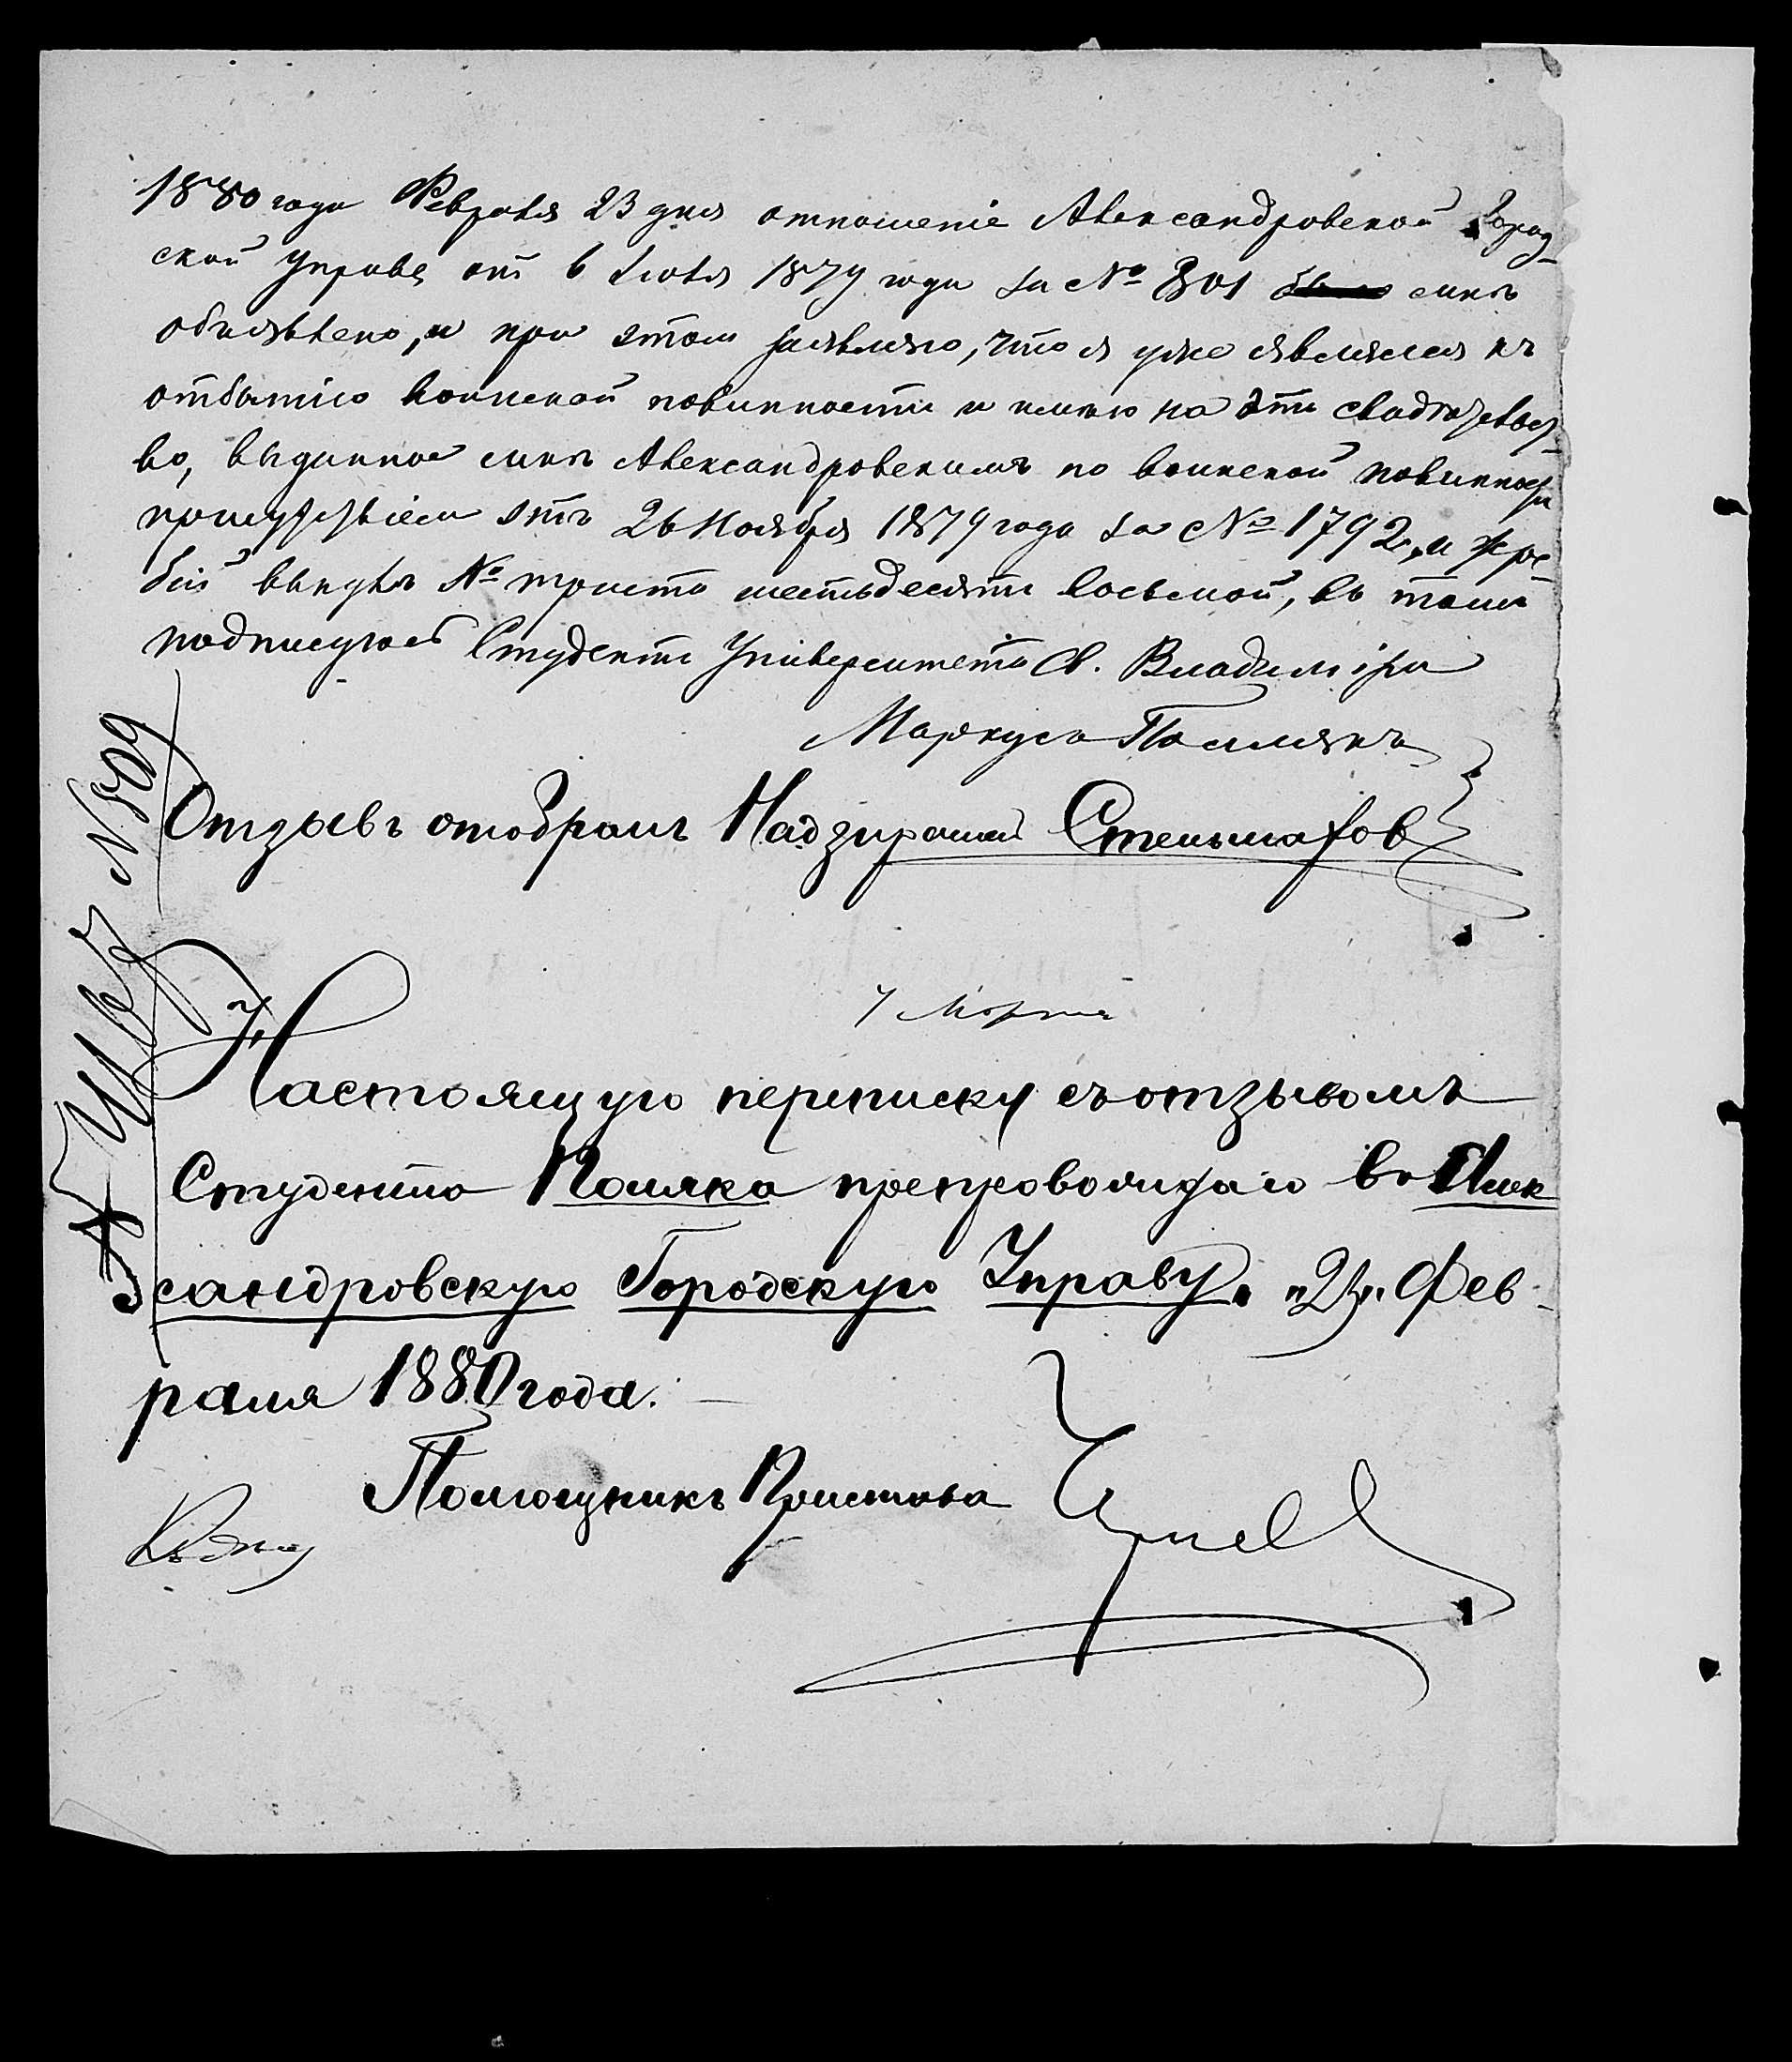 1880 года Февраля 23 дня отношеніе Александровской Город-
ской Управы от 6 Іюля 1879 года за № 801 мнѣ
объявлено, и при этом заявляю, что я уже являлся къ
отбытію воинской повинности и имѣю на это свидѣтельст-
во, выданное мнѣ Александровскимъ по воинской повинности
присутствіем отъ 26 Ноября 1879 года за № 1792, и жре-
бій вынулъ № триста шестьдесятъ восьмой, въ томъ
подписуюсь Студентъ Университета Св. Владиміра
Маркусъ Полякъ
Отзывъ отобралъ Надзиратель Стельмахов
№ 509
7 Марта
Настоящую переписку съ отзывомъ
Студента Поляка препровождаю въ Алек
сандровскую Городскую Управу. "25" Фев-
раля 1880 года.
Помощникъ Пристава